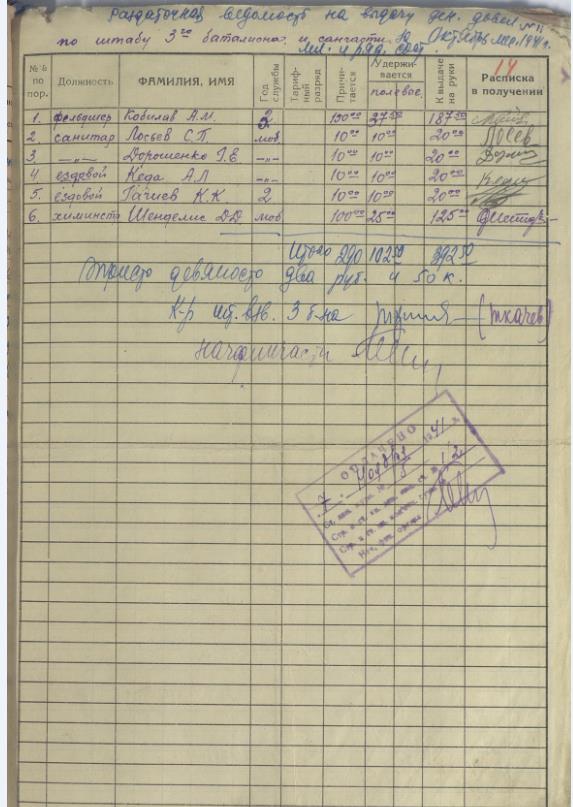 Раздаточная ведомость на выдачу ден. довол. №11
по штабу 3го баталиона и санчасти за Октябрь мес. 1941 г.
мл. и ряд. сост.
14
№№ по пор. Должность ФАМИЛИЯ, ИМЯ Год службы Тарифный разряд Причитается Удерживается полевое К выдаче на руки Расписка в получении
1. фельдшер Кобилав А.М. 2 27 50 187 50
2. санитар Лосьев С.П. моб. 10 00 10 00 20 00 Лосев
3 —„— Дорошенко Г.Е. —„— 10 00 10 00 20 00
4 ездовой Кеда А.Л —„— 10 00 10 00 20 00 Кеда
5. ездовой Гачиев К.К 2 10 00 10 00 20 00
6. химинст Шенделис Д.Д. моб. 100 00 25 00 125 00
Итого 290 102 50 392 50
Триста девяносто два руб. и 50 к.
К-р 3 б-на (Ткачев)
начфинчасти
ОПЛАЧЕНО
7 Ноября 1941 г.